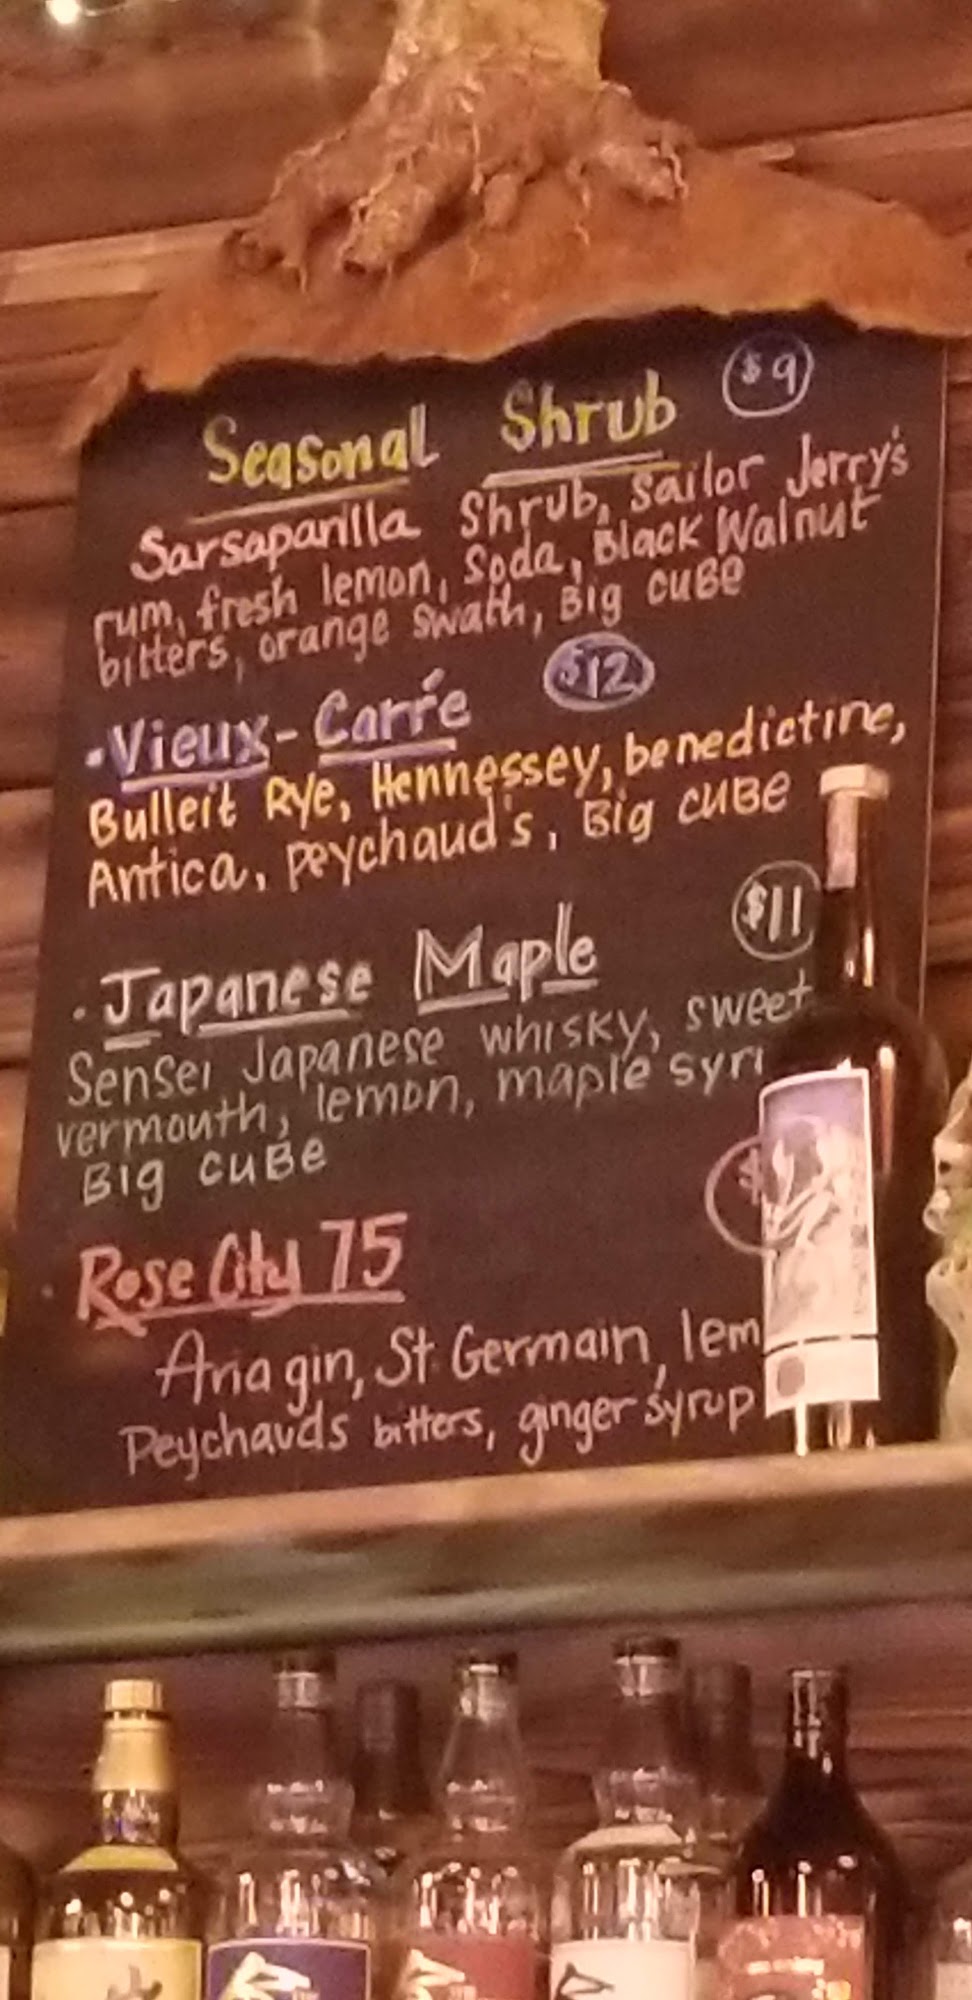 Seasonal Shrub $9
Sarsaparilla Shrub, Sailor Jerry's
rum, fresh lemon, Soda, Black Walnut
bitters, orange swath, Big CUBE
·Vieux-Carré $12
Bulleit Rye, Hennessey, benedictine,
Antica, peychaud's, Big CUBE
·Japanese Maple $11
Sensei Japanese whisky, sweet
vermouth, lemon, maple syr
Big CUBE
·Rose City 75 $
Aria gin, St. Germain, lem
Peychauds bitters, ginger syrup